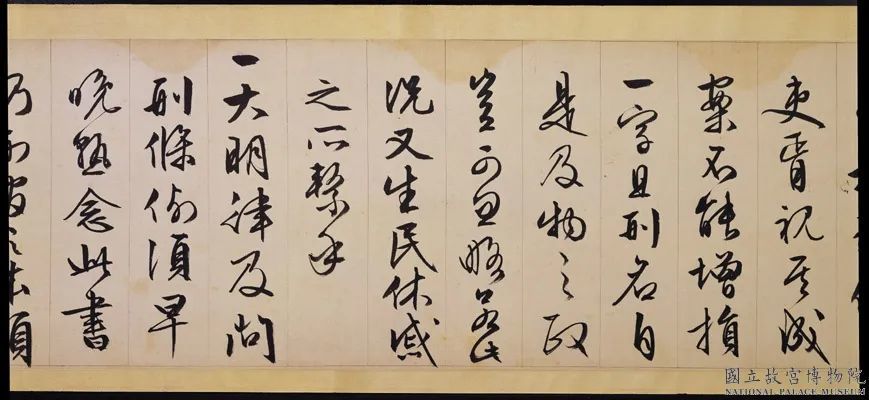 吏胥視其成
案不能增損
一字且刑名自
是及物之政
豈可忽略公此
況又生民休戚
之所繫乎
一大明律及問
刑條例須早
晚熟念此書
乃
須
國立故宮博物院
NATIONAL PALACE MUSEUM